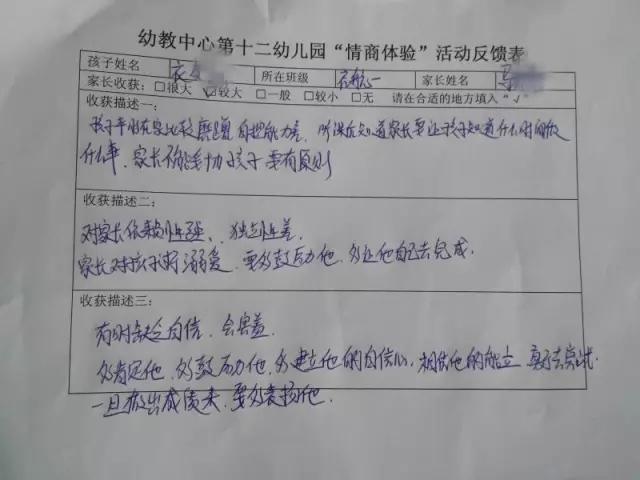 幼教中心第十二幼儿园“情商体验”活动反馈表
孩子姓名 所在班级 家长姓名
家长收获：□很大 ☑较大 □一般 □较小 □无 请在合适的地方填入“√”
收获描述一：
孩子平时在家比较磨蹭 自理能力差，听课后知道家长要让孩子知道什么时间做
什么事，家长不能 孩子 要有原则
收获描述二：
对家长依赖性强、独立性差
家长对孩子 溺爱，要多鼓励他，多让他自己去完成。
收获描述三：
有时缺乏自信，会害羞
多肯定他，多鼓励他，多建立他的自信心，相信他的能力 去尝试
一旦做出成绩来，要多表扬他.